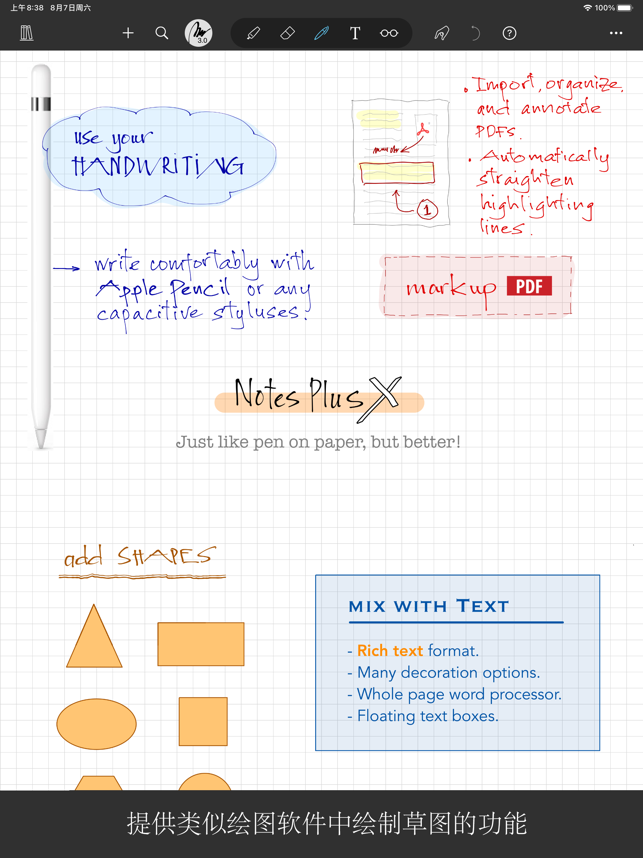 上午8:38 8月7日周六
100%
3.0
T
use your
HANDWRITING
write comfortably with
Apple Pencil or any
capacitive styluses.
1
• Import, organize,
and annotate
PDFs.
• Automatically
straighten
highlighting
lines.
markup PDF
Notes Plus X
Just like pen on paper, but better!
add SHAPES
MIX WITH TEXT
- Rich text format.
- Many decoration options.
- Whole page word processor.
- Floating text boxes.
提供类似绘图软件中绘制草图的功能